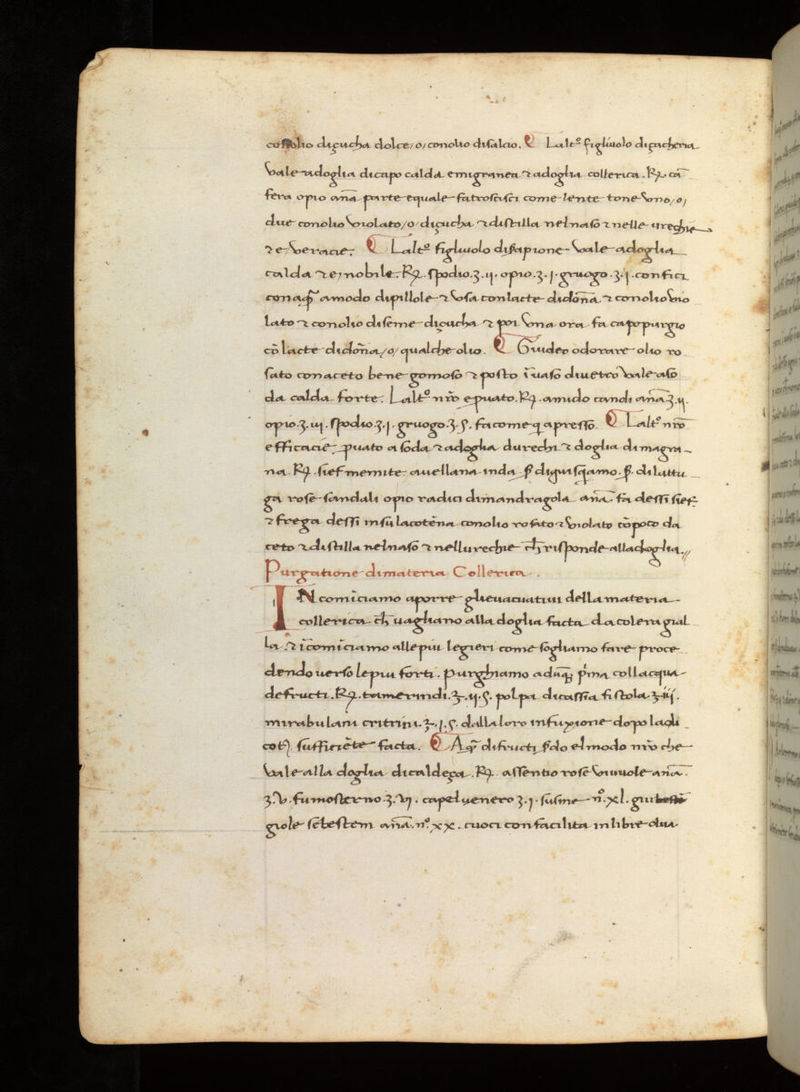 co olio diçucha dolce/o/conolio disalcio. Lalt° figliuolo diçucheria
Vale adoglia dicapo calda emigranea ⁊ adoglia collerica. R. cā
fera opio ana parte equale fatrosisci come lente tone Vono/o/
due conolio Violato/o/ diçucha ⁊ distilla nelnaso ⁊ nelle urechie
⁊ e Verace. Lalt° figluolo disapione Vale adoglia
calda ⁊ e/ nobile. R. spodio.ʒ.ij. opio.ʒ.j. gruogo.ʒ.j. confici
con aq̄ amodo dipillole ⁊ Vsa conlacte didōna ⁊ conolio Vio
lato ⁊ conolio diseme diçucha ⁊ poi Vna ora fa capopurgio
cō lacte didōna/o/ qualche olio. Guideo odorare olio ro
sato conaceto bene gomoso ⁊ posto īuaso diuetro Vale aso
da calda forte. Lalt° nr̄o epuato. R. amido candi ana ʒ.ij.
opio.ʒ.iij. spodio.ʒ.j. gruogo.ʒ.ß. fa come q̄ apresso. Lalt° nr̄o
efficacie puato a soda ⁊ adoglia durechi ⁊ doglia dimagra
na. R. sief memite auellana inda p̄ diquisquamo.p̄. dilattu
ga rose sandali opio radici dimandragola ana. fa dessi sief
⁊ frega dessi insu lacotēna conolio rosato ⁊ Violato cōpoco da
ceto ⁊ distilla nelnaso ⁊ nellurechie ch̄ risponde alladoglia
Purgatione dimateria Collerica.
IN comīciamo aporre glieuacuatiui della materia
collerica ch̄ uagliano alla doglia facta da colera gial
la. ⁊ īcomīciamo allepiu legieri come sogliamo fare proce
dendo uerso lepiu forti. purghiamo adūq; p̄ma collacqua
defructi. R. tamerindi.ʒ.ij.ß. polpa dicassia fistola ʒ.iij.
mirabulani citrini.ʒ.j.ß. dalla loro infusione dopo lagli
cot sufficiēte facta. Aq̄ difructi p̄do elmodo nr̄o che
Vale alla doglia dicaldeça. R. assentio rose Viuuole ana.
ʒ.V. fumosterno.ʒ.Vij. capeluenero ʒ.j. susine n°.xl. giu
giole sebesten ana. n° xx. cuoci con facilita in libre dua